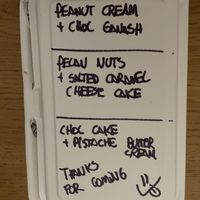 PEANUT CREAM
+ CHOC GANASH
PECAN NUTS
+ SALTED CARAMEL
CHEESE CAKE
CHOC CAKE
+ PISTACHE BUTTER
CREAM
THANKS
FOR COMING